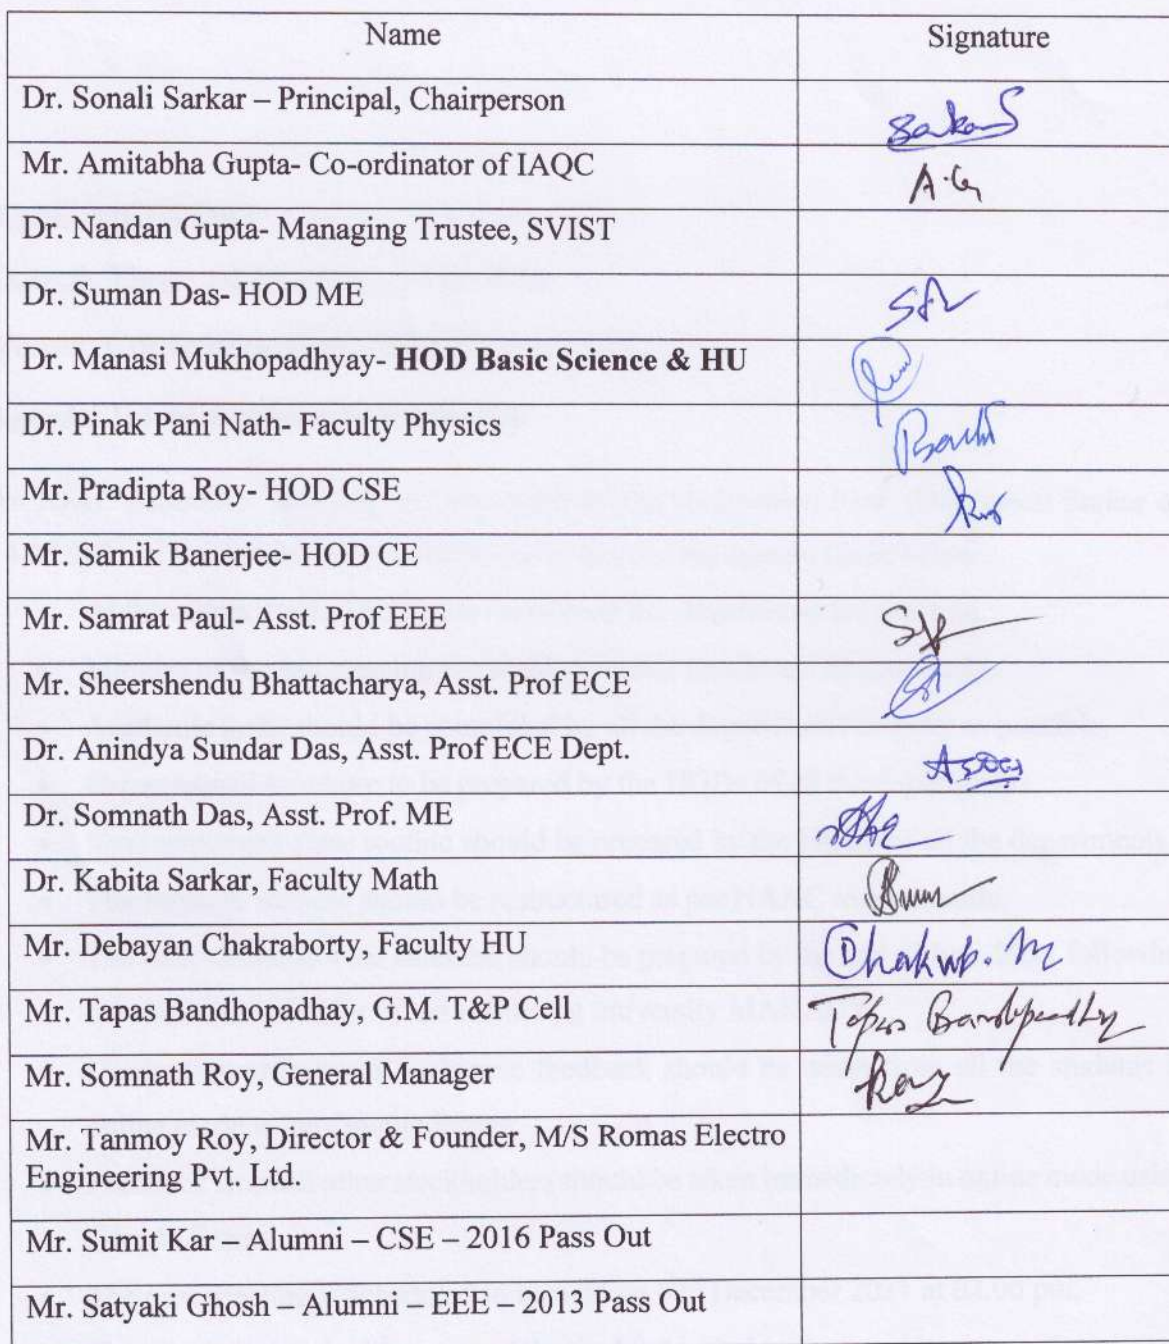 Name Signature
Dr. Sonali Sarkar – Principal, Chairperson Sarkar S
Mr. Amitabha Gupta- Co-ordinator of IAQC A.G
Dr. Nandan Gupta- Managing Trustee, SVIST
Dr. Suman Das- HOD ME
Dr. Manasi Mukhopadhyay- HOD Basic Science & HU
Dr. Pinak Pani Nath- Faculty Physics
Mr. Pradipta Roy- HOD CSE
Mr. Samik Banerjee- HOD CE
Mr. Samrat Paul- Asst. Prof EEE
Mr. Sheershendu Bhattacharya, Asst. Prof ECE
Dr. Anindya Sundar Das, Asst. Prof ECE Dept. ASDas
Dr. Somnath Das, Asst. Prof. ME
Dr. Kabita Sarkar, Faculty Math
Mr. Debayan Chakraborty, Faculty HU
Mr. Tapas Bandhopadhay, G.M. T&P Cell Tapas Bandyopadhyay
Mr. Somnath Roy, General Manager Roy
Mr. Tanmoy Roy, Director & Founder, M/S Romas Electro
Engineering Pvt. Ltd.
Mr. Sumit Kar – Alumni – CSE – 2016 Pass Out
Mr. Satyaki Ghosh – Alumni – EEE – 2013 Pass Out